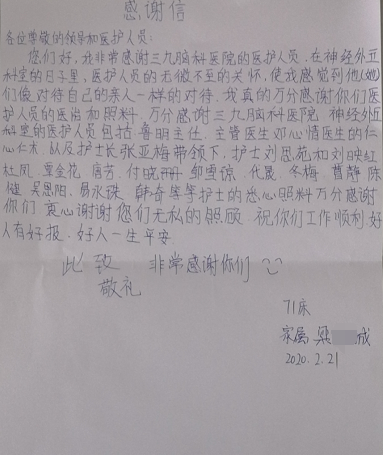 感谢信
各位尊敬的领导和医护人员:
您们好,我非常感谢三九脑科医院的医护人员,在神经外立
科室的日子里,医护人员的无微不至的关怀,使我感觉到他(她)
们像对待自己的亲人一样的对待。我真的万分感谢你们医
护人员的医治和照料,万分感谢三九脑科医院,神经外立
科室的医护人员包括:鲁明主任、主管医生邓心情医生的仁
心仁术,以及护士长张亚梅带领下,护士刘思苑和刘映红
杜凤、覃金花、唐芳、付晓珊、邹雪琼、代晟、冬梅、曹静、陈
健、吴思阳、易永珠、韩奇等等护士的悉心照料万分感谢
你们,衷心谢谢您们无私的照顾,祝你们工作顺利,好
人有好报,好人一生平安
此致 非常感谢你们
敬礼
71床
家属 成
2020.2.21